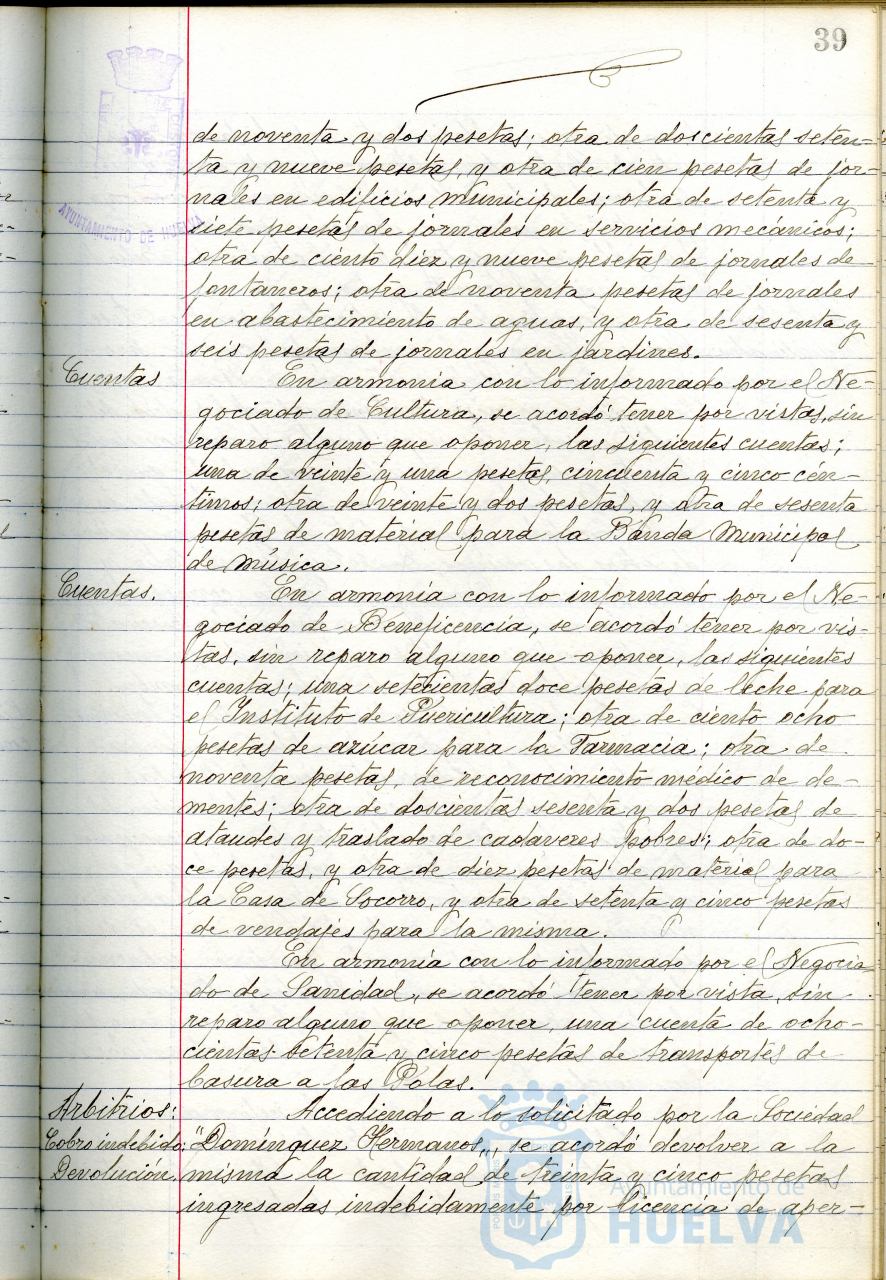 39
de noventa y dos pesetas; otra de doscientas seten-
ta y nueve pesetas, y otra de cien pesetas de jor-
nales en edificios municipales; otra de setenta y
siete pesetas de jornales en servicios mecánicos;
otra de ciento diez y nueve pesetas de jornales de
fontaneros; otra de noventa pesetas de jornales
en abastecimiento de aguas, y otra de sesenta y
seis pesetas de jornales en jardines.
Cuentas
En armonia con lo informado por el Ne-
gociado de Cultura, se acordó tener por vistas, sin
reparo alguno que oponer, las siguientes cuentas;
una de veinte y una pesetas, cincuenta y cinco cén-
timos; otra de veinte y dos pesetas, y otra de sesenta
pesetas de material para la Banda Municipal
de música.
Cuentas.
En armonía con lo informado por el Ne-
gociado de Beneficencia, se acordó tener por vis-
tas, sin reparo alguno que oponer, las siguientes
cuentas; una setecientas doce pesetas de leche para
el Instituto de Puericultura; otra de ciento ocho
pesetas de azúcar para la Farmacia; otra de
noventa pesetas, de reconocimiento médico de de-
mentes; otra de doscientas sesenta y dos pesetas de
ataudes y traslado de cadaveres pobres; otra de do-
ce pesetas, y otra de diez pesetas de material para
la Casa de Socorro, y otra de setenta y cinco pesetas
de vendajes para la misma.
En armonía con lo informado por el Negocia
do de Sanidad, se acordó tener por vista, sin
reparo alguno que oponer, una cuenta de ocho-
cientas setenta y cinco pesetas de transportes de
basura a las Polas.
Arbitrios:
Cobro indebido;
Devolución.
Accediendo a lo solicitado por la Sociedad
"Domínguez Hermanos", se acordó devolver a la
misma la cantidad de treinta y cinco pesetas
ingresadas indebidamente por licencia de aper-
AYUNTAMIENTO DE HUELVA
Ayuntamiento de
HUELVA